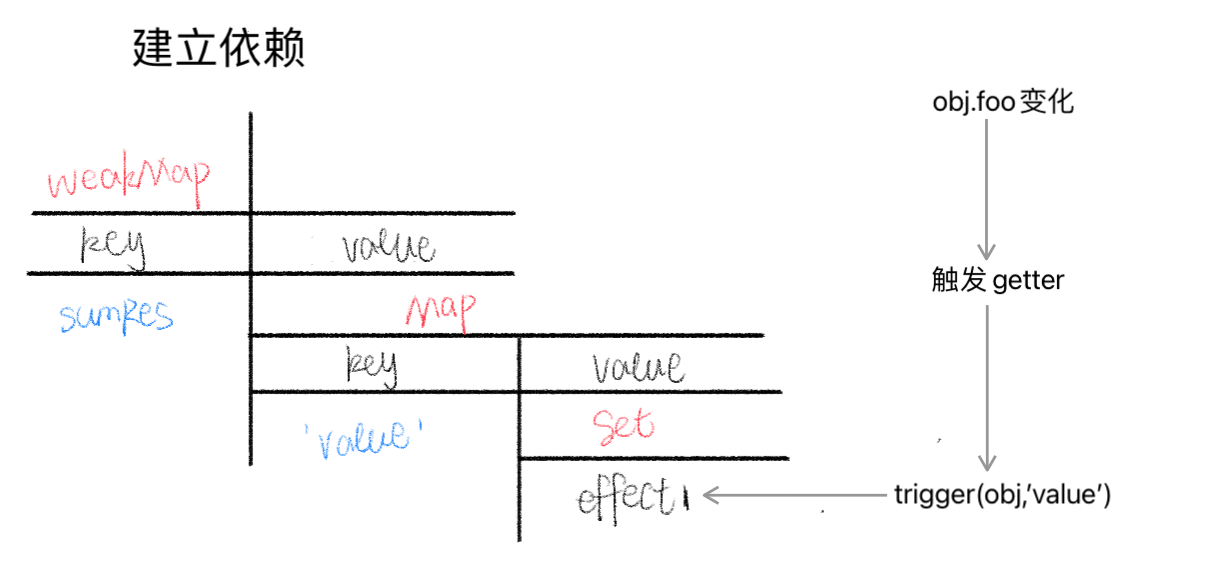 建立依赖
weakMap
key value
sumRes
Map
key value
'value'
Set
effect1
obj.foo变化
触发 getter
trigger(obj,'value')